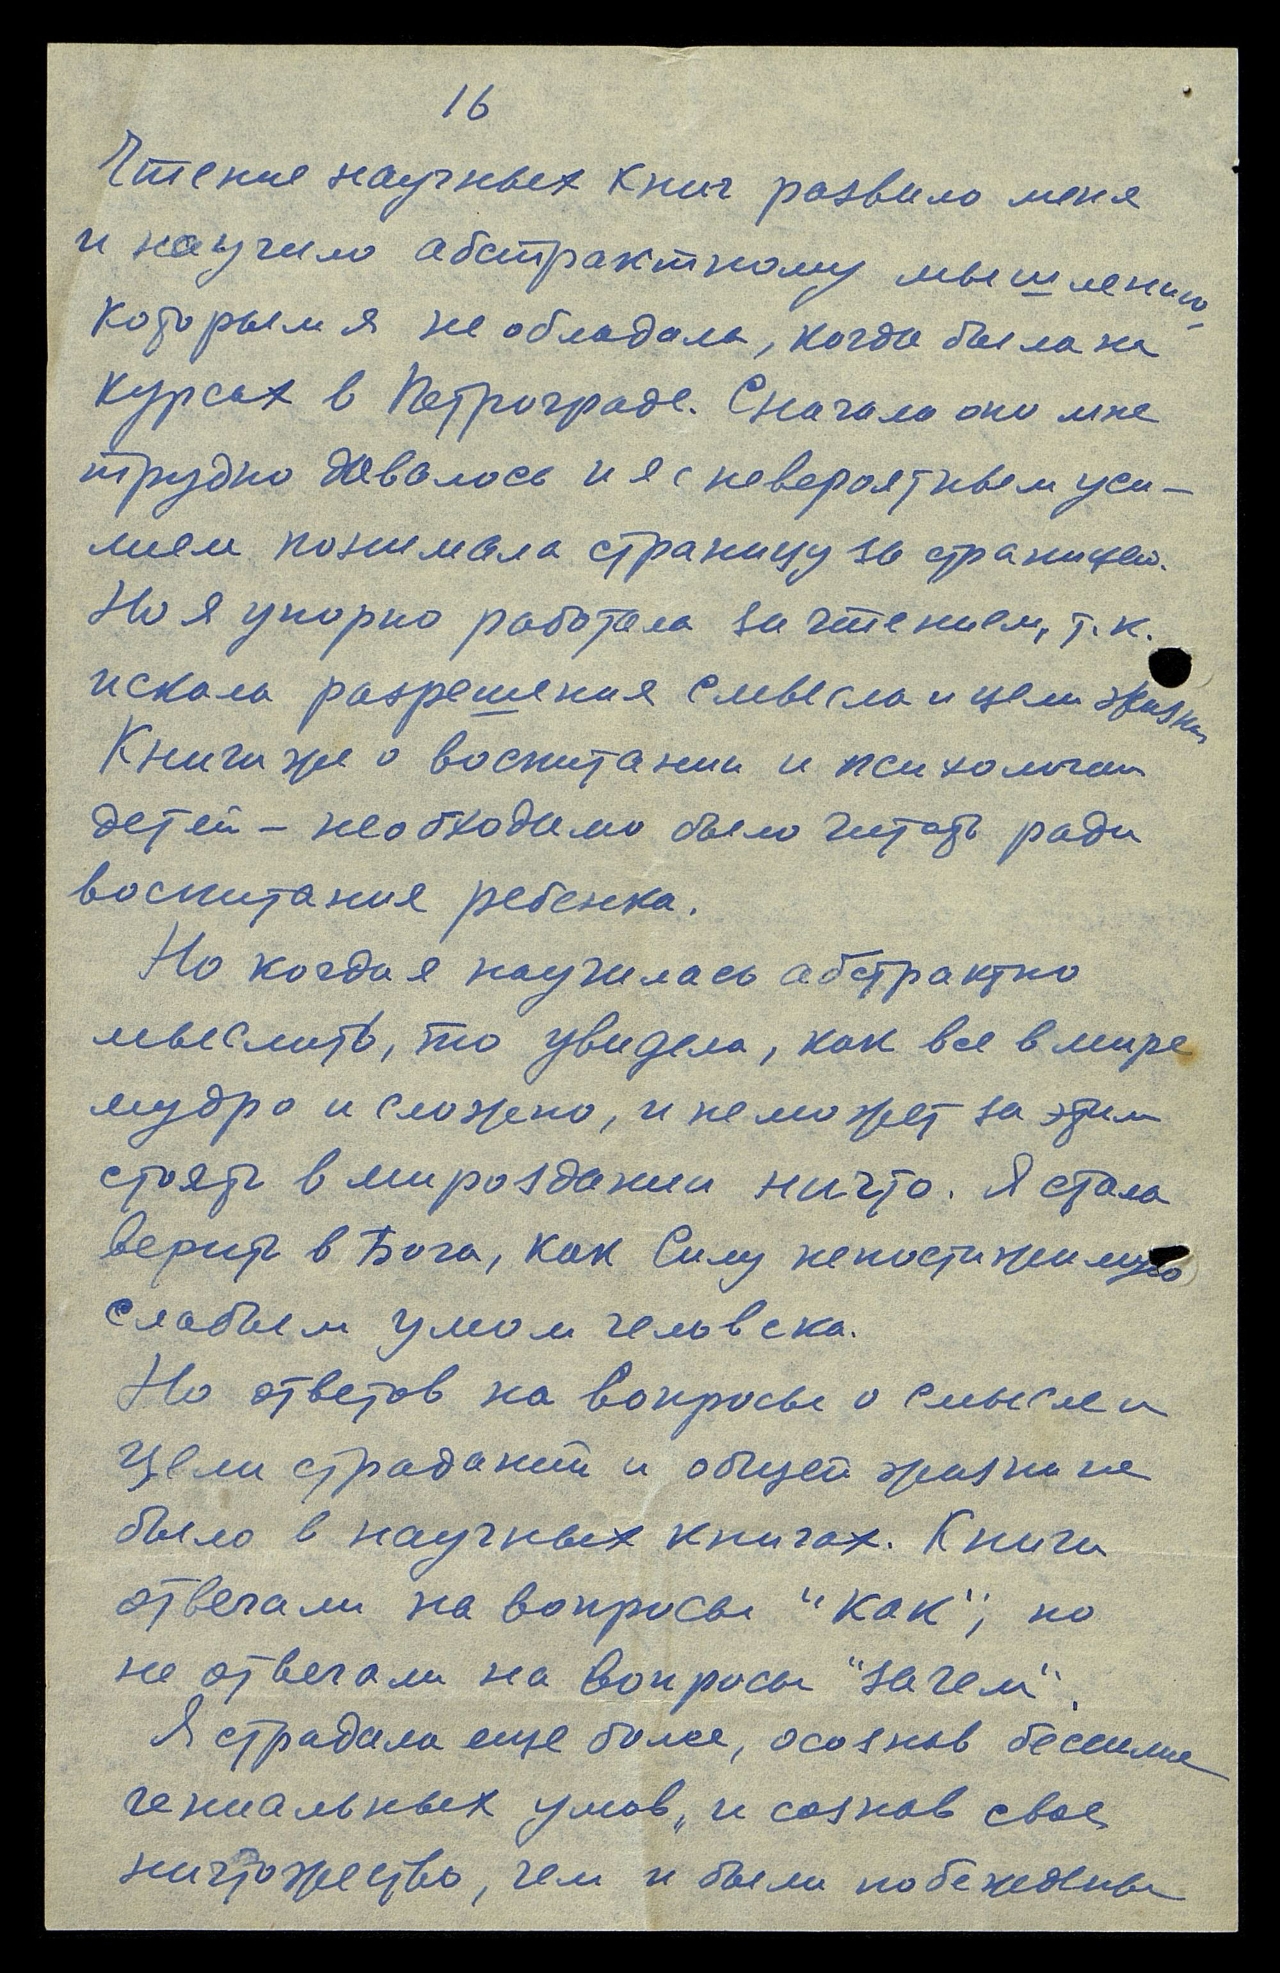 16
Чтение научных книг развило меня
и научило абстрактному мышлению,
которым я не обладала, когда была на
курсах в Петрограде. Сначала оно мне
трудно давалось и я с невероятным уси-
лием понимала страницу за страницей.
Но я упорно работала за чтением, т.к.
искала разрешения смысла и цели жизни
Книги же о воспитании и психологии
детей - необходимо было читать ради
воспитания ребенка.
Но когда я научилась абстрактно
мыслить, то увидела, как все в мире
мудро и сложно, и не может за этим
стоять в мироздании ничто. Я стала
верить в Бога, как Силу непостижимую
слабым умом человека.
Но ответов на вопросы о смысле и
цели страданий и общей жизни не
было в научных книгах. Книги
отвечали на вопросы "как", но
не отвечали на вопросы "зачем".
Я страдала еще более, осознав бессилие
гениальных умов, и сознав свое
ничтожество, чем и были побеждены